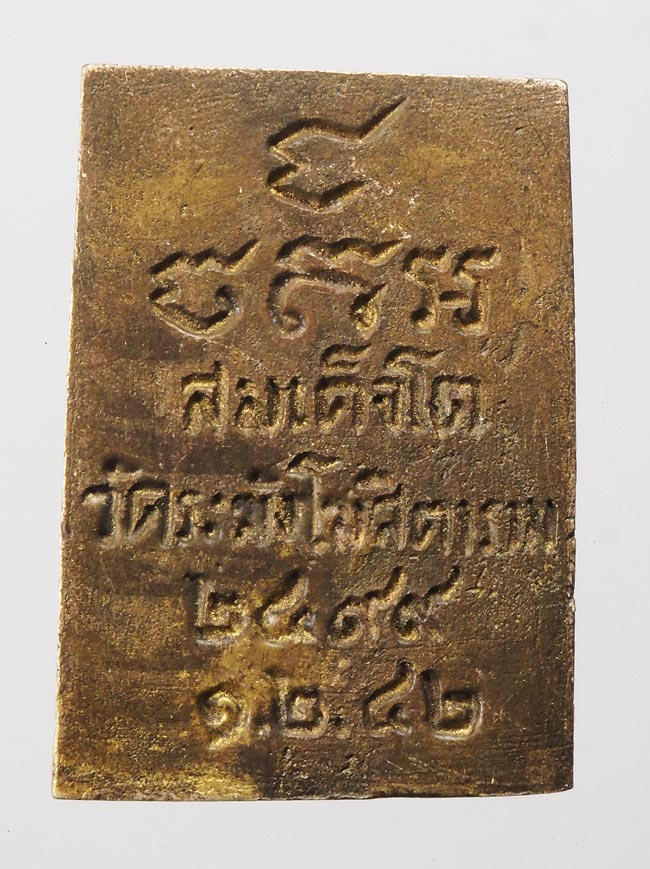 สมเด็จโต
วัดระฆังโฆสิตาราม
๒๔๙๙
๑.๒.๔๒